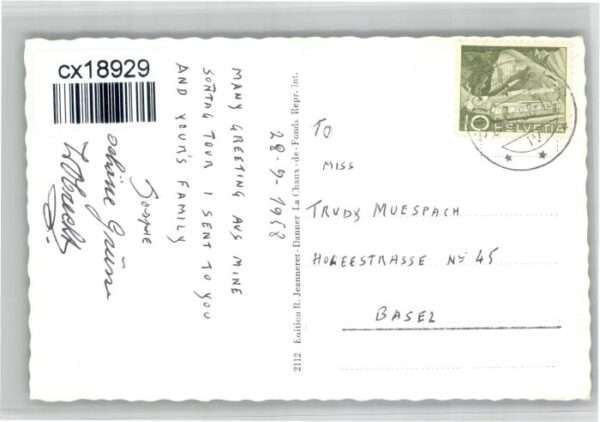 cx18929
MANY GREETING AUS MINE
SONTAG TOUR I SENT TO YOU
AND YOUR'S FAMILY
schöne Grüsse
28-9-1958
2112 Edition R. Jeanneret-Danner La Chaux-de-Fonds Repr. int.
10
HELVETIA
TO
MISS
TRUDY MUESPACH
HOLEESTRASSE No 45
BASEL